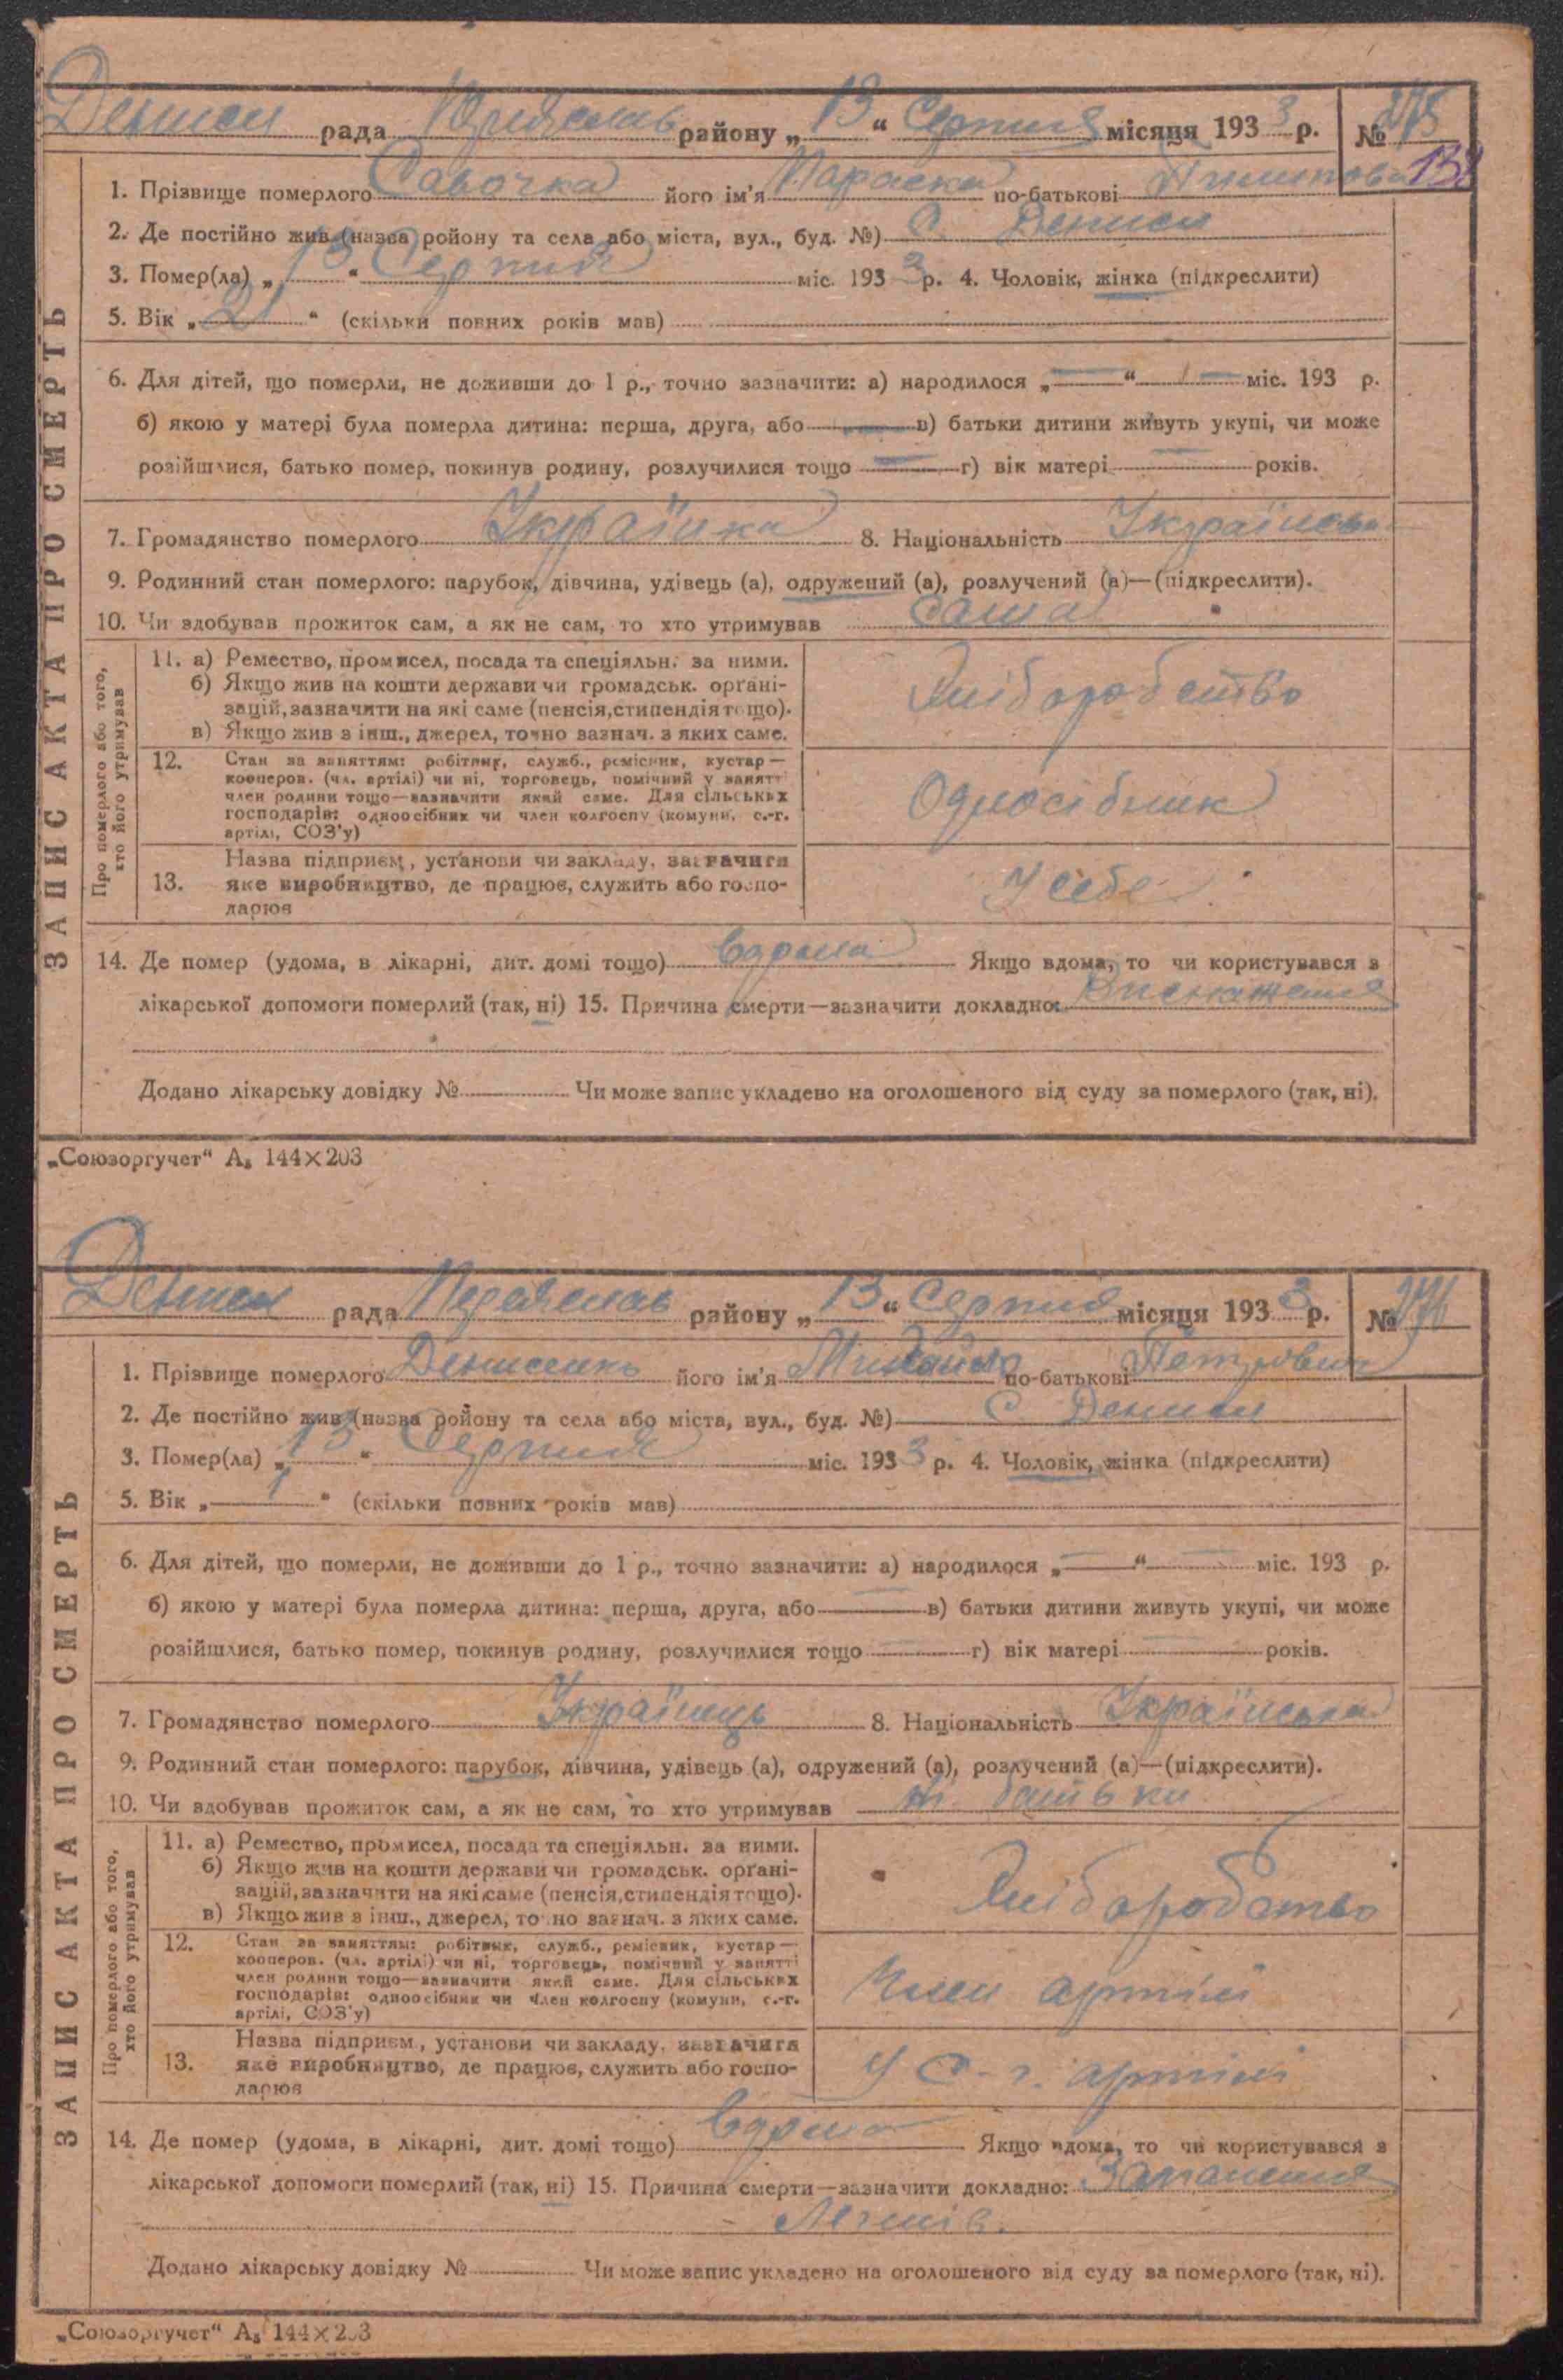 Дениси рада Переяслав району „ 13 “ Серпня місяця 193 3 р. № 275
138
1. Прізвище померлого Савочка його ім'я Параска по-батькові Пилипова
2. Де постійно жив (назва ройону та села або міста, вул., буд. №) С. Дениси
3. Помер(ла) „ 13 “ Серпня міс. 193 3 р. 4. Чоловік, жінка (підкреслити)
5. Вік „ 21 “ (скільки повних років мав)
6. Для дітей, що померли, не доживши до 1 р., точно зазначити: а) народилося „ — “ — міс. 193 р.
б) якою у матері була померла дитина: перша, друга, або — в) батьки дитини живуть укупі, чи може
розійшлися, батько помер, покинув родину, розлучилися тощо — г) вік матері — років.
7. Громадянство померлого Українка 8. Національність Українська
9. Родинний стан померлого: парубок, дівчина, удівець (а), одружений (а), розлучений (а)—(підкреслити).
10. Чи здобував прожиток сам, а як не сам, то хто утримував Сама
ЗАПИС АКТА ПРО СМЕРТЬ
Про померлого або того,
хто його утримував
11. а) Ремество, промисел, посада та спеціяльн. за ними.
б) Якщо жив на кошти держави чи громадськ. орґані-
зацій, зазначити на які саме (пенсія, стипендія тощо).
в) Якщо жив з інш., джерел, точно зазнач. з яких саме.
Хліборобство
12. Стан за заняттям: робітник, служб., ремісник, кустар —
кооперов. (чл. артілі) чи ні, торговець, помічний у занятті
член родини тощо—зазначити який саме. Для сільських
господарів: одноосібник чи член колгоспу (комуни, с.-г.
артілі, СОЗ'у)
Односібник
13. Назва підприєм., установи чи закладу, зазначити
яке виробництво, де працює, служить або госпо-
дарює
У себе
14. Де помер (удома, в лікарні, дит. домі тощо) вдома Якщо вдома, то чи користувався з
лікарської допомоги померлий (так, ні) 15. Причина смерти—зазначити докладно: Виснаження
Додано лікарську довідку № Чи може запис укладено на оголошеного від суду за померлого (так, ні).
„Союзоргучет“ А₅ 144×203
Дениси рада Переяслав району „ 13 “ Серпня місяця 193 3 р. № 276
1. Прізвище померлого Денисенко його ім'я Михайло по-батькові Петрович
2. Де постійно жив (назва ройону та села або міста, вул., буд. №) С. Дениси
3. Помер(ла) „ 13 “ Серпня міс. 193 3 р. 4. Чоловік, жінка (підкреслити)
5. Вік „ 1 “ (скільки повних років мав)
6. Для дітей, що померли, не доживши до 1 р., точно зазначити: а) народилося „ — “ — міс. 193 р.
б) якою у матері була померла дитина: перша, друга, або — в) батьки дитини живуть укупі, чи може
розійшлися, батько помер, покинув родину, розлучилися тощо — г) вік матері — років.
7. Громадянство померлого Українець 8. Національність Українська
9. Родинний стан померлого: парубок, дівчина, удівець (а), одружений (а), розлучений (а)—(підкреслити).
10. Чи здобував прожиток сам, а як не сам, то хто утримував батьки
ЗАПИС АКТА ПРО СМЕРТЬ
Про померлого або того,
хто його утримував
11. а) Ремество, промисел, посада та спеціяльн. за ними.
б) Якщо жив на кошти держави чи громадськ. орґані-
зацій, зазначити на які саме (пенсія, стипендія тощо).
в) Якщо жив з інш., джерел, точно зазнач. з яких саме.
Хліборобство
12. Стан за заняттям: робітник, служб., ремісник, кустар —
кооперов. (чл. артілі) чи ні, торговець, помічний у занятті
член родини тощо—зазначити який саме. Для сільських
господарів: одноосібник чи член колгоспу (комуни, с.-г.
артілі, СОЗ'у)
Член артілі
13. Назва підприєм., установи чи закладу, зазначити
яке виробництво, де працює, служить або госпо-
дарює
У С.-г. артілі
14. Де помер (удома, в лікарні, дит. домі тощо) вдома Якщо вдома, то чи користувався з
лікарської допомоги померлий (так, ні) 15. Причина смерти—зазначити докладно: Запалення
Легенів.
Додано лікарську довідку № Чи може запис укладено на оголошеного від суду за померлого (так, ні).
„Союзоргучет“ А₅ 144×203